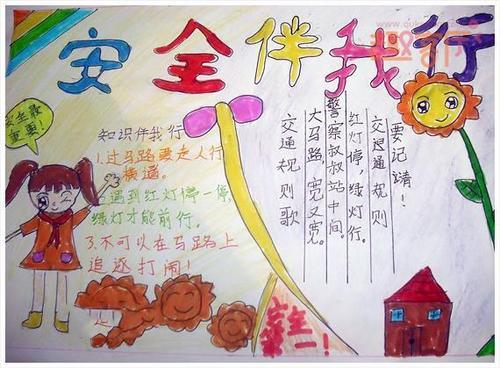 安全伴我行
安全最
重要!
知识伴我行
1.过马路要走人行
横道。
2.遇到红灯停一停,
绿灯才能前行。
3.不可以在马路上
追逐打闹!
交通规则歌
大马路,宽又宽。
警察叔叔站中间。
红灯停,绿灯行。
交通规则
要记清!
安全
第一!